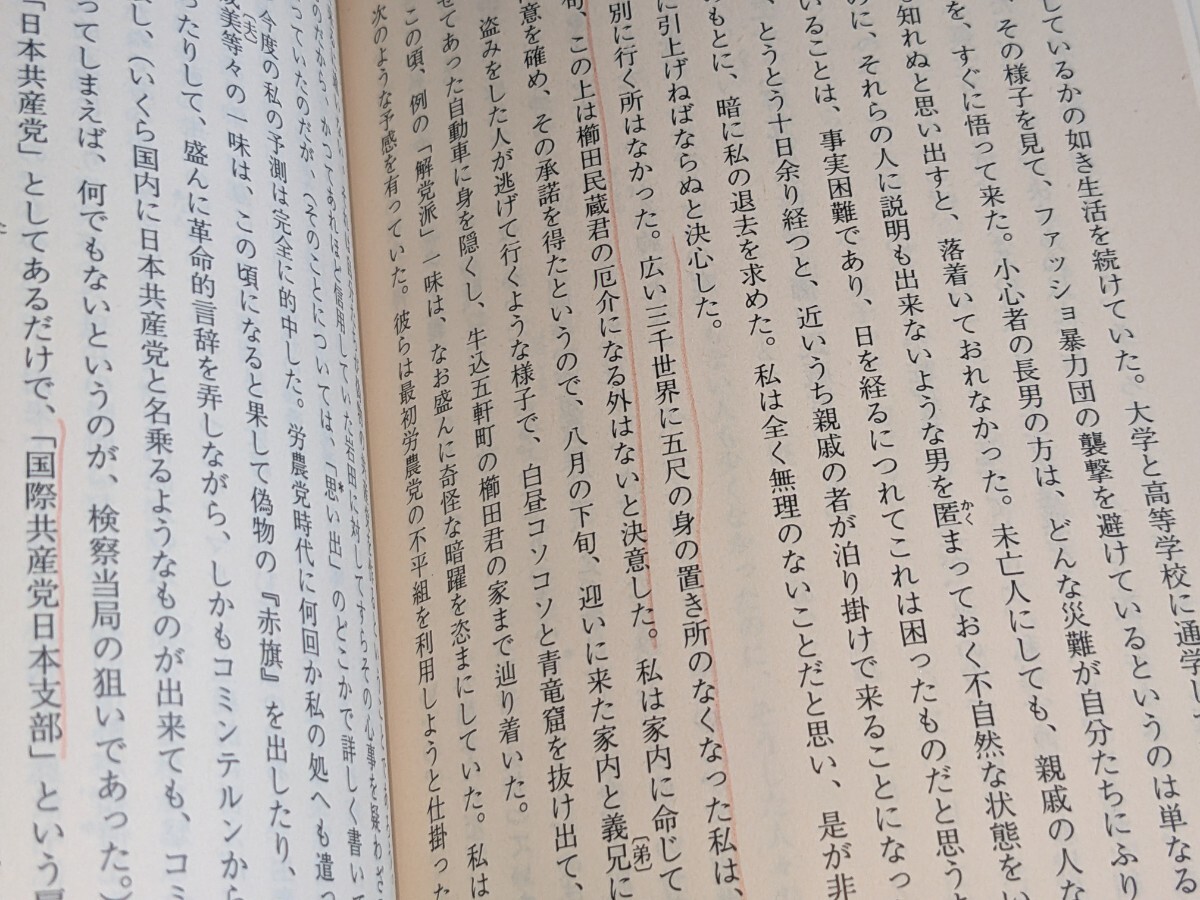 しているかの如き生活を続けていた。大学と高等学校に通学し
、その様子を見て、ファッショ暴力団の襲撃を避けているというのは単なる
を、すぐに悟って来た。小心者の長男の方は、どんな災難が自分たちにふり
も知れぬと思い出すと、落着いておれなかった。未亡人にしても、親戚の人な
のに、それらの人に説明も出来ないような男を匿まっておく不自然な状態をい
かく
いることは、事実困難であり、日を経るにつれてこれは困ったものだと思うと
、とうとう十日余り経つと、近いうち親戚の者が泊り掛けで来ることになっ
のもとに、暗に私の退去を求めた。私は全く無理のないことだと思い、是が非
に引上げねばならぬと決心した。
別に行く所はなかった。広い三千世界に五尺の身の置き所のなくなった私は、
旬、この上は櫛田民蔵君の厄介になる外はないと決意した。私は家内に命じて
意を確め、その承諾を得たというので、八月の下旬、迎いに来た家内と義兄に
〔弟〕
盗みをした人が逃げて行くような様子で、白昼コソコソと青竜窟を抜け出て、
せてあった自動車に身を隠くし、牛込五軒町の櫛田君の家まで辿り着いた。
この頃、例の「解党派」一味は、なお盛んに奇怪な暗躍を恣まにしていた。私は
次のような予感を有っていた。彼らは最初労農党の不平組を利用しようと仕掛った
かつてあれほど信用していた岩田に対してすらその心事を疑わざ
っていたのだが、(そのことについては、「思い出」のどこかで詳しく書いて
*
今度の私の予測は完全に的中した。労農党時代に何回か私の処へも遣っ
成美等々の一味は、この頃になると果して偽物の『赤旗』を出したり、
〔夫〕
ったりして、盛んに革命的言辞を弄しながら、しかもコミンテルンから
し、(いくら国内に日本共産党と名乗るようなものが出来ても、コミ
ってしまえば、何でもないというのが、検察当局の狙いであった。)
「日本共産党」としてあるだけで、「国際共産党日本支部」という